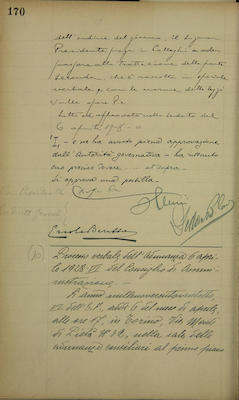 170
dell'ordine del giorno, il Signor
Presidente prega i Colleghi a voler
passare alla trattazione della parte
seconda, che è raccolta in speciale
verbale, con le norme della legge
sulle opere Pie
Letto ed approvato nella seduta del
6 aprile 1928 -
e ne ha avuto piena approvazione
dall'Autorità governativa - ha ritenuto
suo preciso dovere
Si approva una postilla -
Processo verbale dell'adunanza 6 apri-
le 1928 VI del Consiglio di Ammi-
nistrazione -
L'anno millenovecentoventotto,
VI dell'E.F., addì 6 del mese di aprile,
alle ore 17, in Torino, Via Monte
di Pietà N° 32, nella sala delle
adunanze consiliari al primo piano